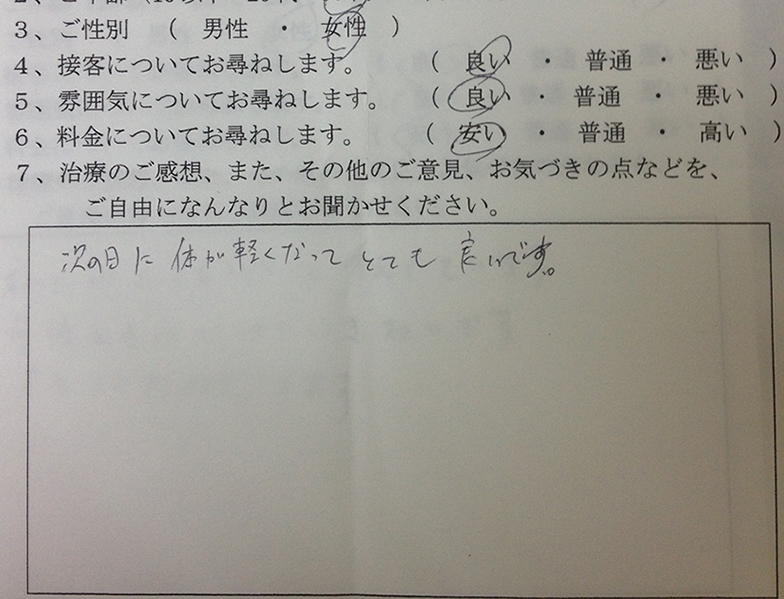 3、ご性別 ( 男性 ・ 女性 )
4、接客についてお尋ねします。 ( 良い ・ 普通 ・ 悪い )
5、雰囲気についてお尋ねします。 ( 良い ・ 普通 ・ 悪い )
6、料金についてお尋ねします。 ( 安い ・ 普通 ・ 高い )
7、治療のご感想、また、その他のご意見、お気づきの点などを、
ご自由になんなりとお聞かせください。
次の日に 体が軽くなって とても 良いです。